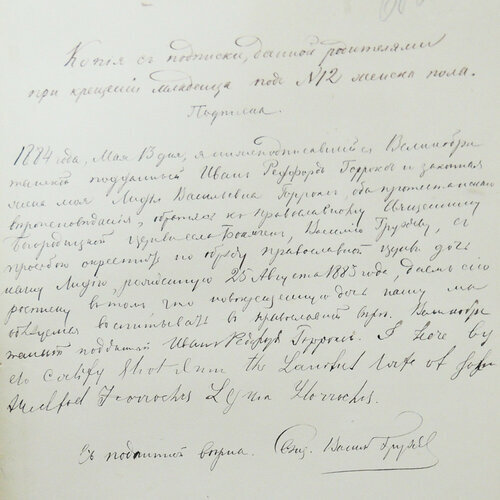 Копія съ подписки, данной родителями
при крещеніи младенца подъ №12 женска пола.
Подписка.
1884 года, Мая 13 дня, я нижеподписавшійся Великобри
танскій подданный Иванъ Редфордъ Горроксъ и законная
жена моя Лидія Васильевна Горроксъ, оба протестантскаго
вѣроисповѣданія, обратясь къ православному священнику
Богородицкой церкви села Василію Грузову, съ
просьбою окрестить по обряду православной церкви дочь
нашу Лидію, рожденную 25 Августа 1883 года, даемъ сію
росписку въ томъ, что новокрещенную дочь нашу мы
обязуемся воспитывать въ православной вѣрѣ. Великобри
танскій подданный Иванъ Редфордъ Горроксъ. I here by
do certify that I am the Lawful wife of John
Horrocks Lydia Horrocks.
Съ подлинной вѣрна. Свящ. Василій